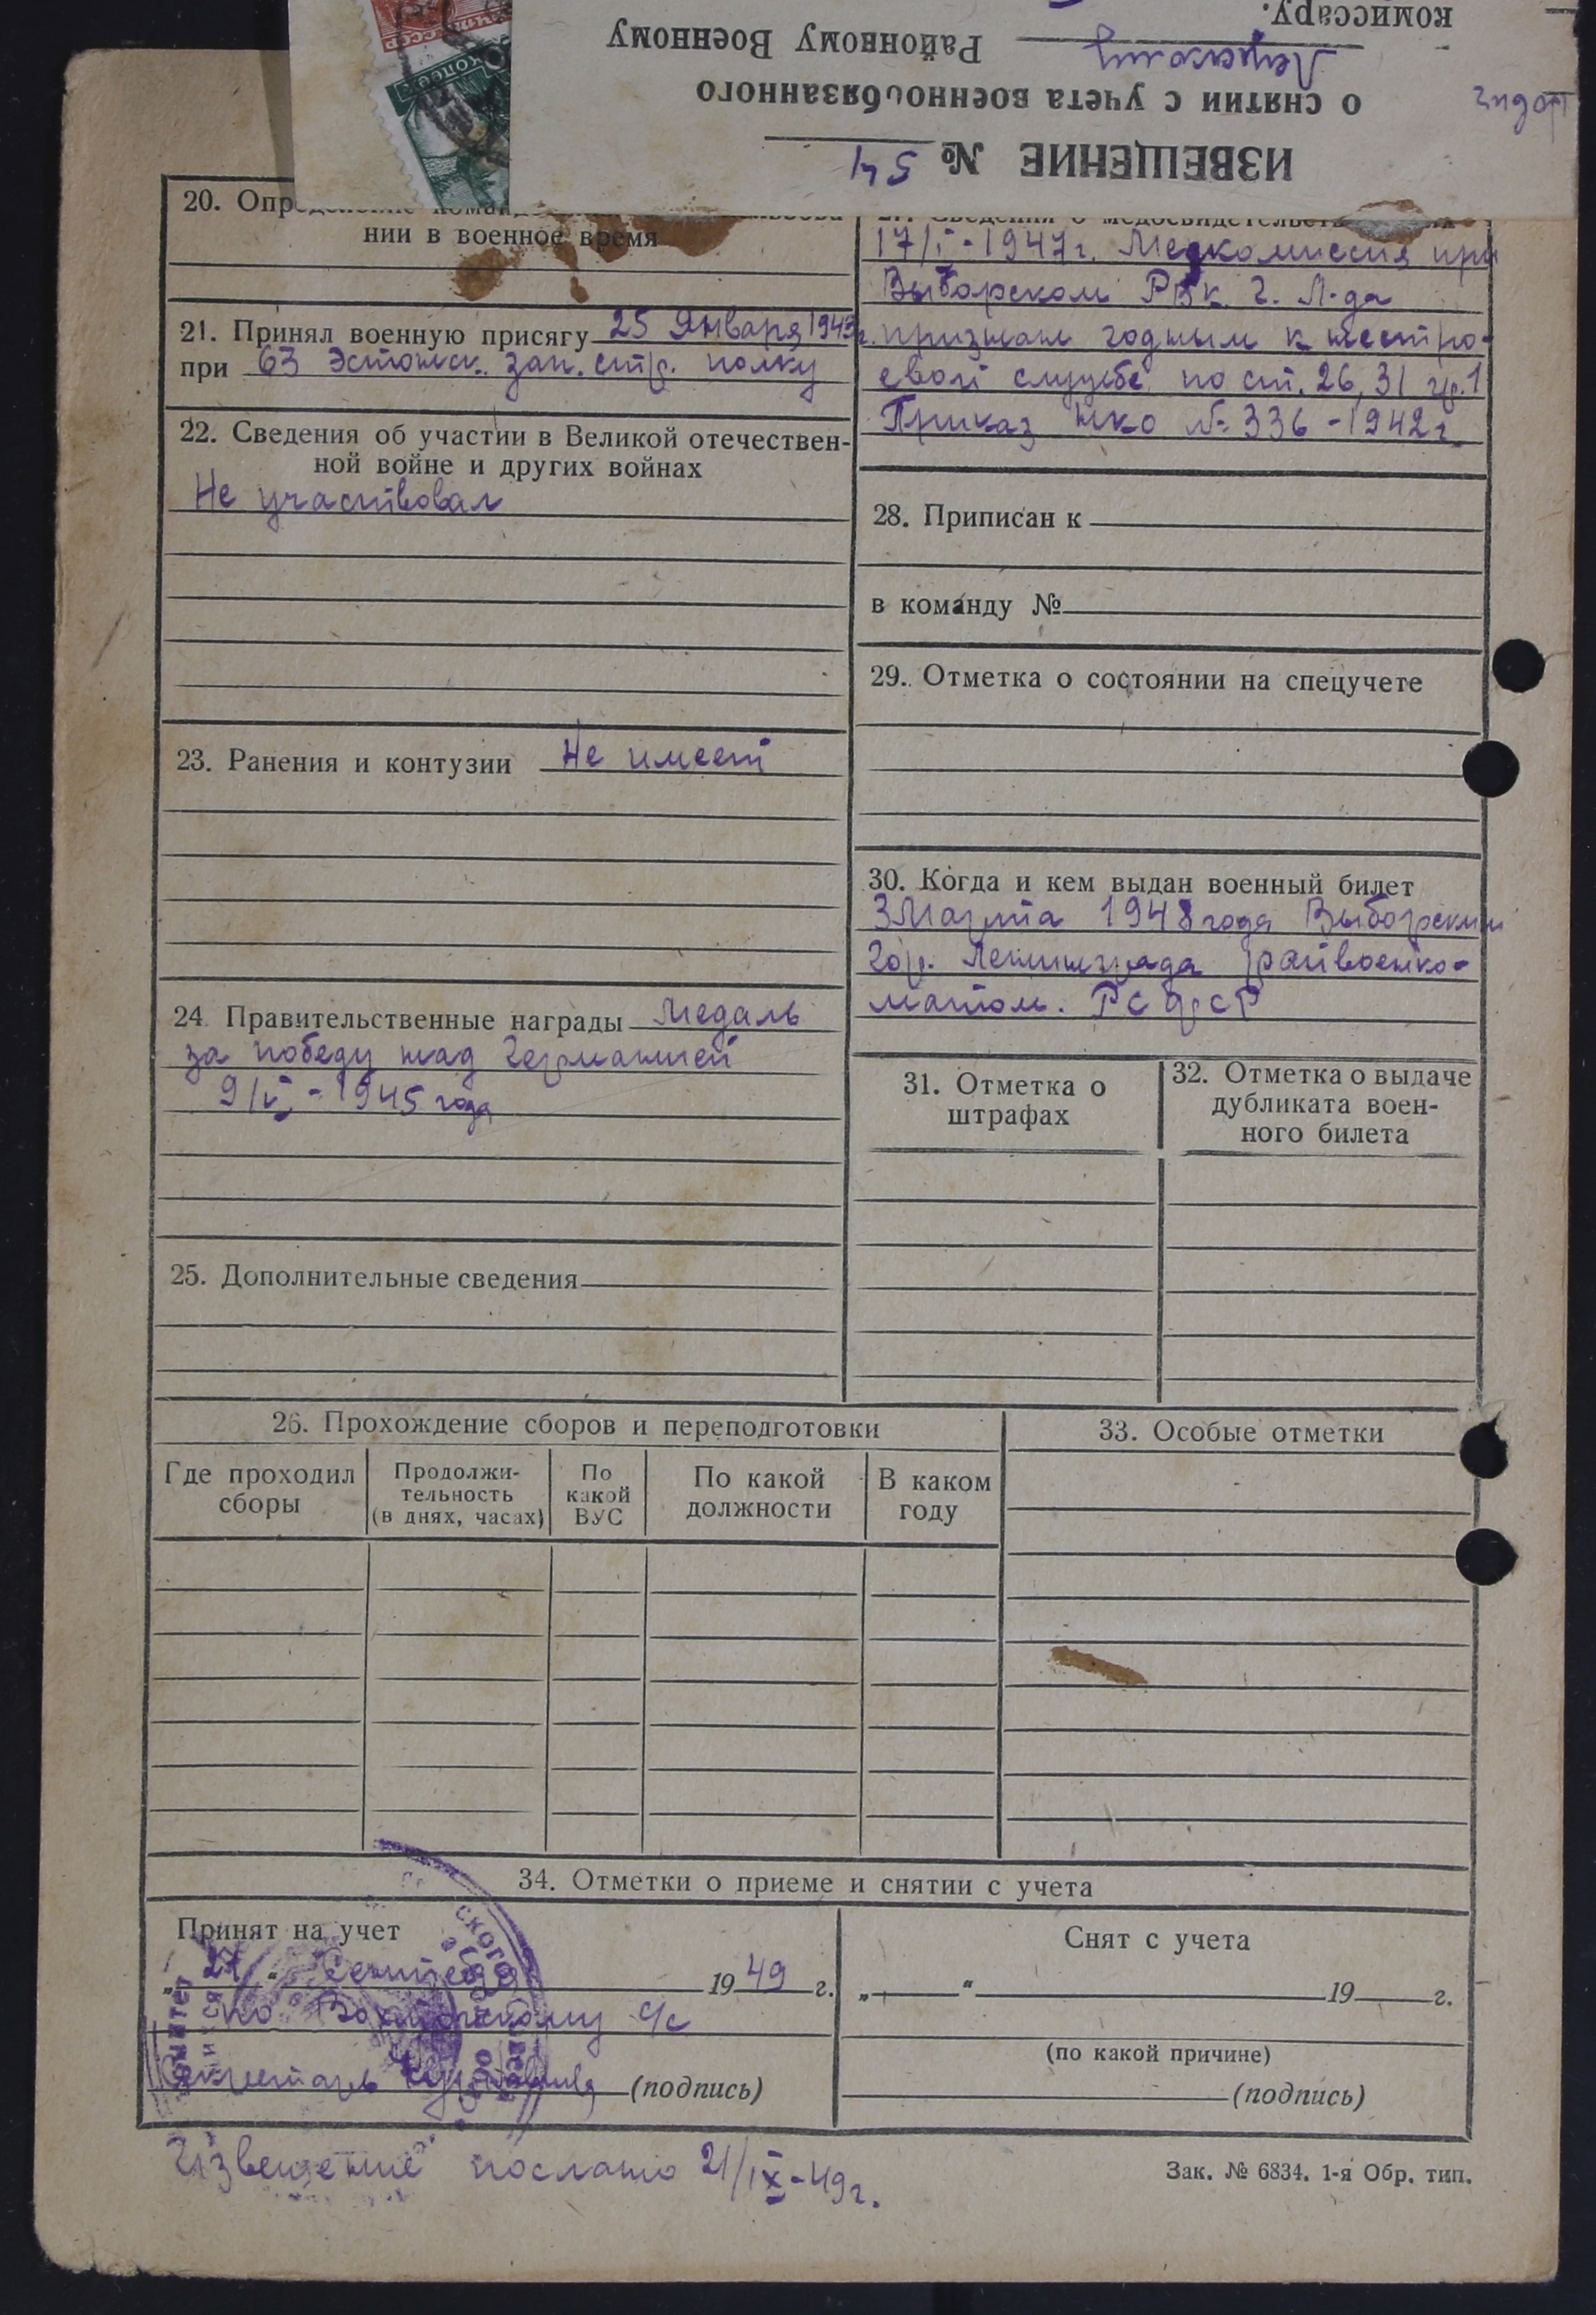 комиссару.
Районному Военному
о снятии с учета военнообязанного
ИЗВЕЩЕНИЕ № 54
20.
нии в военное время
21. Принял военную присягу 25 Января 1943г.
при 63 Эстонск. зап. стр. полку
22. Сведения об участии в Великой отечествен-
ной войне и других войнах
Не участвовал
23. Ранения и контузии Не имеет
24. Правительственные награды Медаль
за победу над Германией
9/V - 1945 года
25. Дополнительные сведения
17/I - 1947г. Медкомиссия при
Выборском РВК г. Л-да
признан годным к нестро-
евой службе по ст. 26, 31 гр. 1
Приказ НКО № 336 - 1942г.
28. Приписан к
в команду №
29. Отметка о состоянии на спецучете
30. Когда и кем выдан военный билет
3 Марта 1948 года Выборским
гор. Ленинграда райвоенко-
матом. РСФСР
31. Отметка о
штрафах
32. Отметка о выдаче
дубликата воен-
ного билета
26. Прохождение сборов и переподготовки
Где проходил
сборы
Продолжи-
тельность
(в днях, часах)
По
какой
ВУС
По какой
должности
В каком
году
33. Особые отметки
34. Отметки о приеме и снятии с учета
Принят на учет
„21“ Сентября 1949 г.
по с/с
Секретарь (подпись)
Снят с учета
„ “ 19 г.
(по какой причине)
(подпись)
Извещение послано 21/IX-49г.
Зак. № 6834. 1-я Обр. тип.